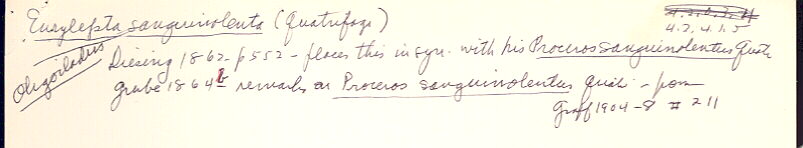 Eurylepta sanguinolenta (Quatrefage)
4.2.4.1.5
Oligocladus
Diesing 1862-p552 - places this in syn. with his Proceros sanguinolentus Quatr
Grube 1864b remarks on Proceros sanguinolentus Quatr -
Graff 1904-8 # 211